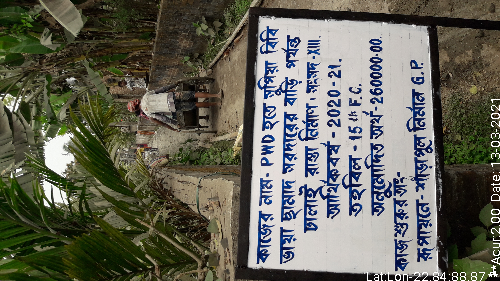 কাজের নাম- PWD হতে সুপিয়া বিবি
ভায়া ছামাদ সরদারের বাড়ি পর্যন্ত
ঢালাই রাস্তা নির্মাণ। সংসদ-XIII.
আর্থিকবর্ষ - 2020-21.
তহবিল - 15 th F.C.
অনুমোদিত অর্থ- 260000-00.
কাজ শুরুর তাং-
রূপায়নে- শাঁড়াপুল নির্মান G.P.
Lat Lon-22.84:88.87
**Acur:2.00 Date 13-03-2021